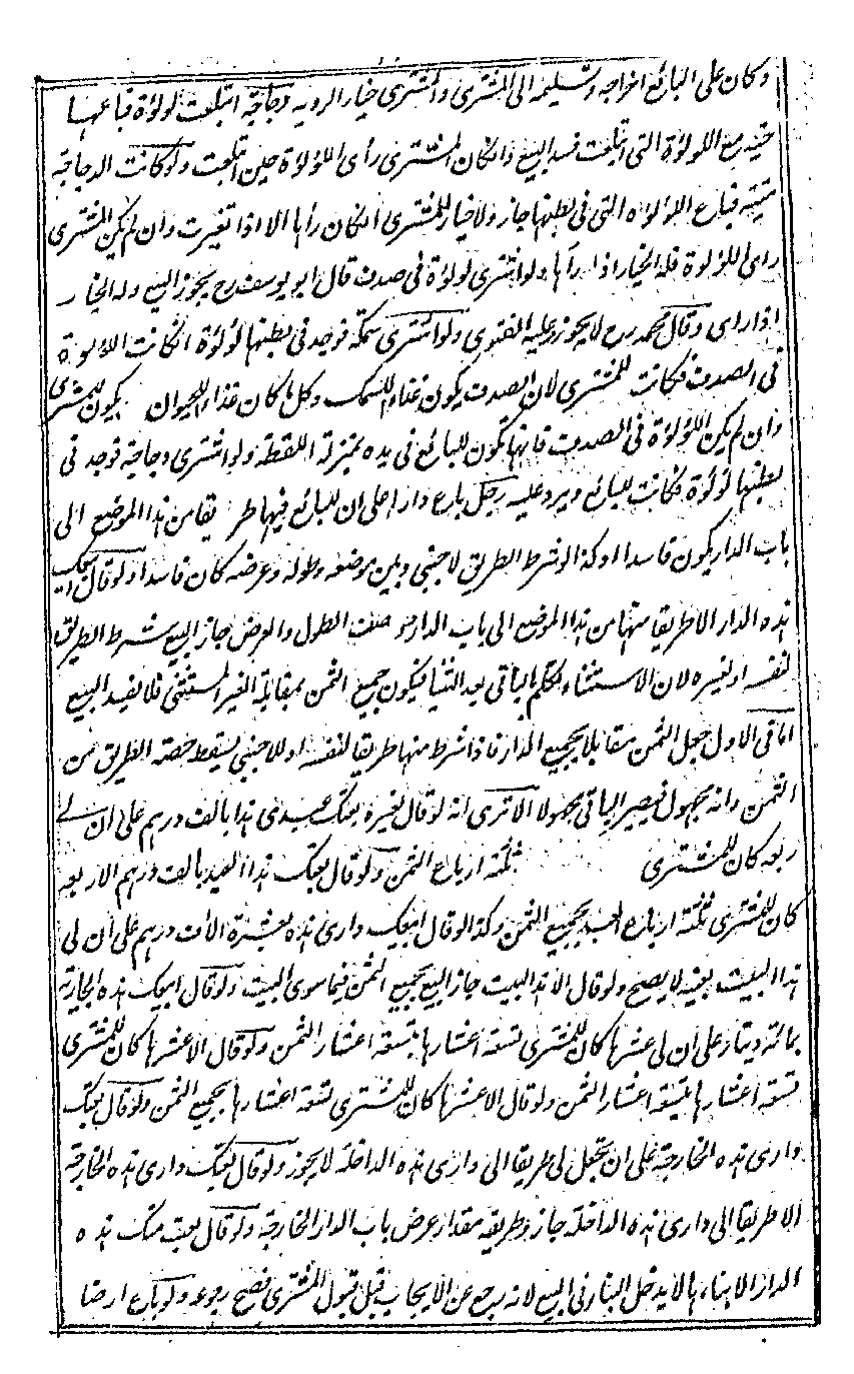 وكان على البائع اخراجه وتسليمه الى المشترى وللمشترى خيار الرويه دجاجة ابتلعت لولوة فباعها
حية مع اللولوة التى ابتلعت فسد البيع وانكان المشترى رأى اللؤلوة حين ابتلعت ولو كانت الدجاجة
ميتة فباع اللؤلوه التى فى بطنها جاز ولا خيار للمشترى انكان رأها الا اذا تغيرت وان لم يكن المشترى
راى اللؤلوة فله الخيار اذا رآها ولو اشترى لولوة فى صدف قال ابو يوسف رح يجوز البيع وله الخيار
اذا راى وقال محمد رح لا يجوز وعليه الفتوى ولو اشترى سمكة فوجد فى بطنها لؤلوة انكانت اللؤلوة
فى الصدف فكانت للمشترى لان الصدف يكون غذاء للسمك وكل ما كان غذاء للحيوان يكون للمشترى
وان لم يكن اللؤلوة فى الصدف فانها تكون للبائع فى يده بمنزلة اللقطة ولو اشترى دجاجة فوجد فى
بطنها لولوة فكانت للبائع ويرد عليه رجل باع دارا على ان للبائع فيها طريقا من هذا الموضع الى
باب الدار يكون فاسدا وكذا لو شرط الطريق لاجنبى وبين موضعه وطوله وعرضه كان فاسدا ولو قال ابيعك
هذه الدار الا طريقا منها من هذا الموضع الى باب الدار ووصف الطول والعرض جاز البيع بشرط الطريق
لنفسه او لغيره لان الاستثناء تكلم بالباقى بعد الثنيا فيكون جميع الثمن بمقابلة الغير المستثنى فلا يفسد البيع
اما فى الاول جعل الثمن مقابلا بجميع الدار فاذا شرط منها طريقا لنفسه او للاجنبى يسقط حصة الطريق من
الثمن وانه مجهول فيصير الباقى مجهولا الا ترى انه لو قال لغيره بعتك عبدى هذا بالف درهم على ان لے
ربعه كان للمشترى ثلثة ارباع الثمن ولو قال بعتك هذا العبد بالف درهم الا ربعه
كان للمشترى ثلثة ارباع العبد بجميع الثمن وكذا لو قال ابيعك دارى هذه بعشرة الاف درهم على ان لى
هذا البيت بعينه لا يصح ولو قال الا هذا البيت جاز البيع بجميع الثمن فيما سوى البيت ولو قال ابيعك هذه الجارية
بمائة دينار على ان لى عشرها كان للمشترى تسعة اعشارها بتسعة اعشار الثمن ولو قال الا عشرها كان للمشترى
تسعة اعشارها بتسعة اعشار الثمن ولو قال الا عشرها كان للمشترى تسعة اعشارها بجميع الثمن ولو قال بعتك
دارى هذه الخارجة على ان تجعل لى طريقا الى دارى هذه الداخلة لا يجوز ولو قال بعتك دارى هذه الخارجة
الا طريقا الى دارى هذه الداخلة جاز وطريقه مقدار عرض باب الدار الخارجة ولو قال بعت منك هذه
الدار الا بناءها لا يدخل البناء فى البيع لانه رجع عن الايجاب قبل قبول المشترى فصح رجوعه ولو باع ارضا